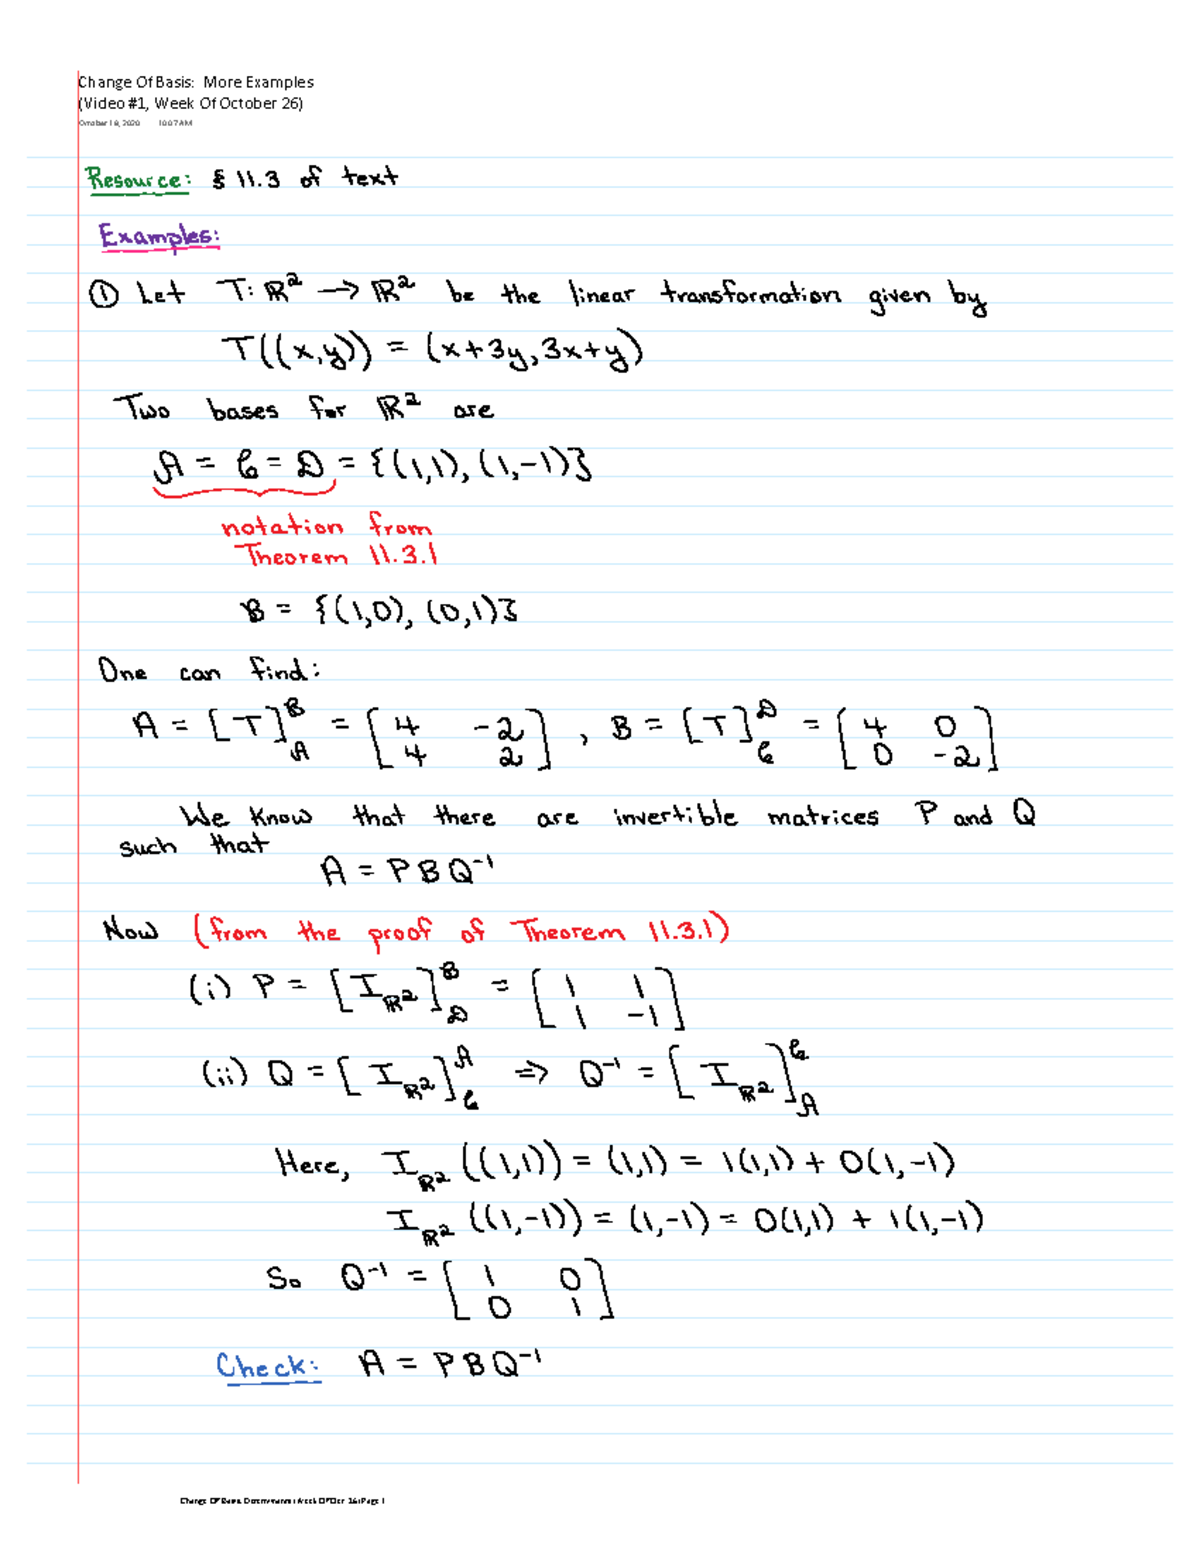 Change Of Basis: More Examples
(Video #1, Week Of October 26)
October 18, 2020 10:07 AM
Resource: § 11.3 of text
Examples:
① Let T: ℝ² → ℝ² be the linear transformation given by
T((x,y)) = (x+3y, 3x+y)
Two bases for ℝ² are
𝒜 = 𝒞 = 𝒟 = {(1,1), (1,-1)}
notation from
Theorem 11.3.1
ℬ = {(1,0), (0,1)}
One can find:
A = [T]_𝒜^ℬ = [4 -2; 4 2], B = [T]_𝒞^𝒟 = [4 0; 0 -2]
We know that there are invertible matrices P and Q
such that
A = PBQ⁻¹
Now (from the proof of Theorem 11.3.1)
(i) P = [I_ℝ²]_𝒟^ℬ = [1 1; 1 -1]
(ii) Q = [I_ℝ²]_𝒞^𝒜 ⇒ Q⁻¹ = [I_ℝ²]_𝒜^𝒞
Here, I_ℝ²((1,1)) = (1,1) = 1(1,1) + 0(1,-1)
I_ℝ²((1,-1)) = (1,-1) = 0(1,1) + 1(1,-1)
So Q⁻¹ = [1 0; 0 1]
Check: A = PBQ⁻¹